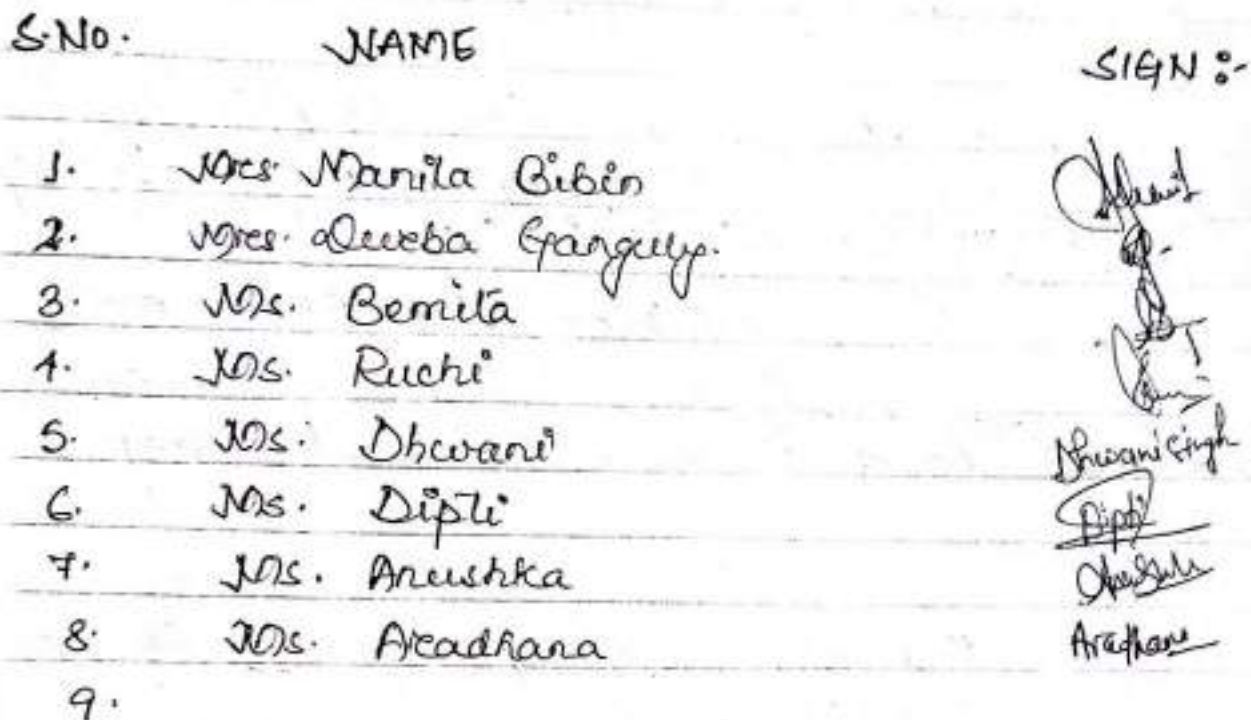 S.No. NAME SIGN :-
1. Mrs. Manila Bibin
2. Mrs. Ganguly.
3. Ms. Bemita
4. Ms. Ruchi
5. Ms. Dhwani Dhwani Singh
6. Ms. Dipti Dipti
7. Ms. Anushka
8. Ms. Aradhana Aradhana
9.